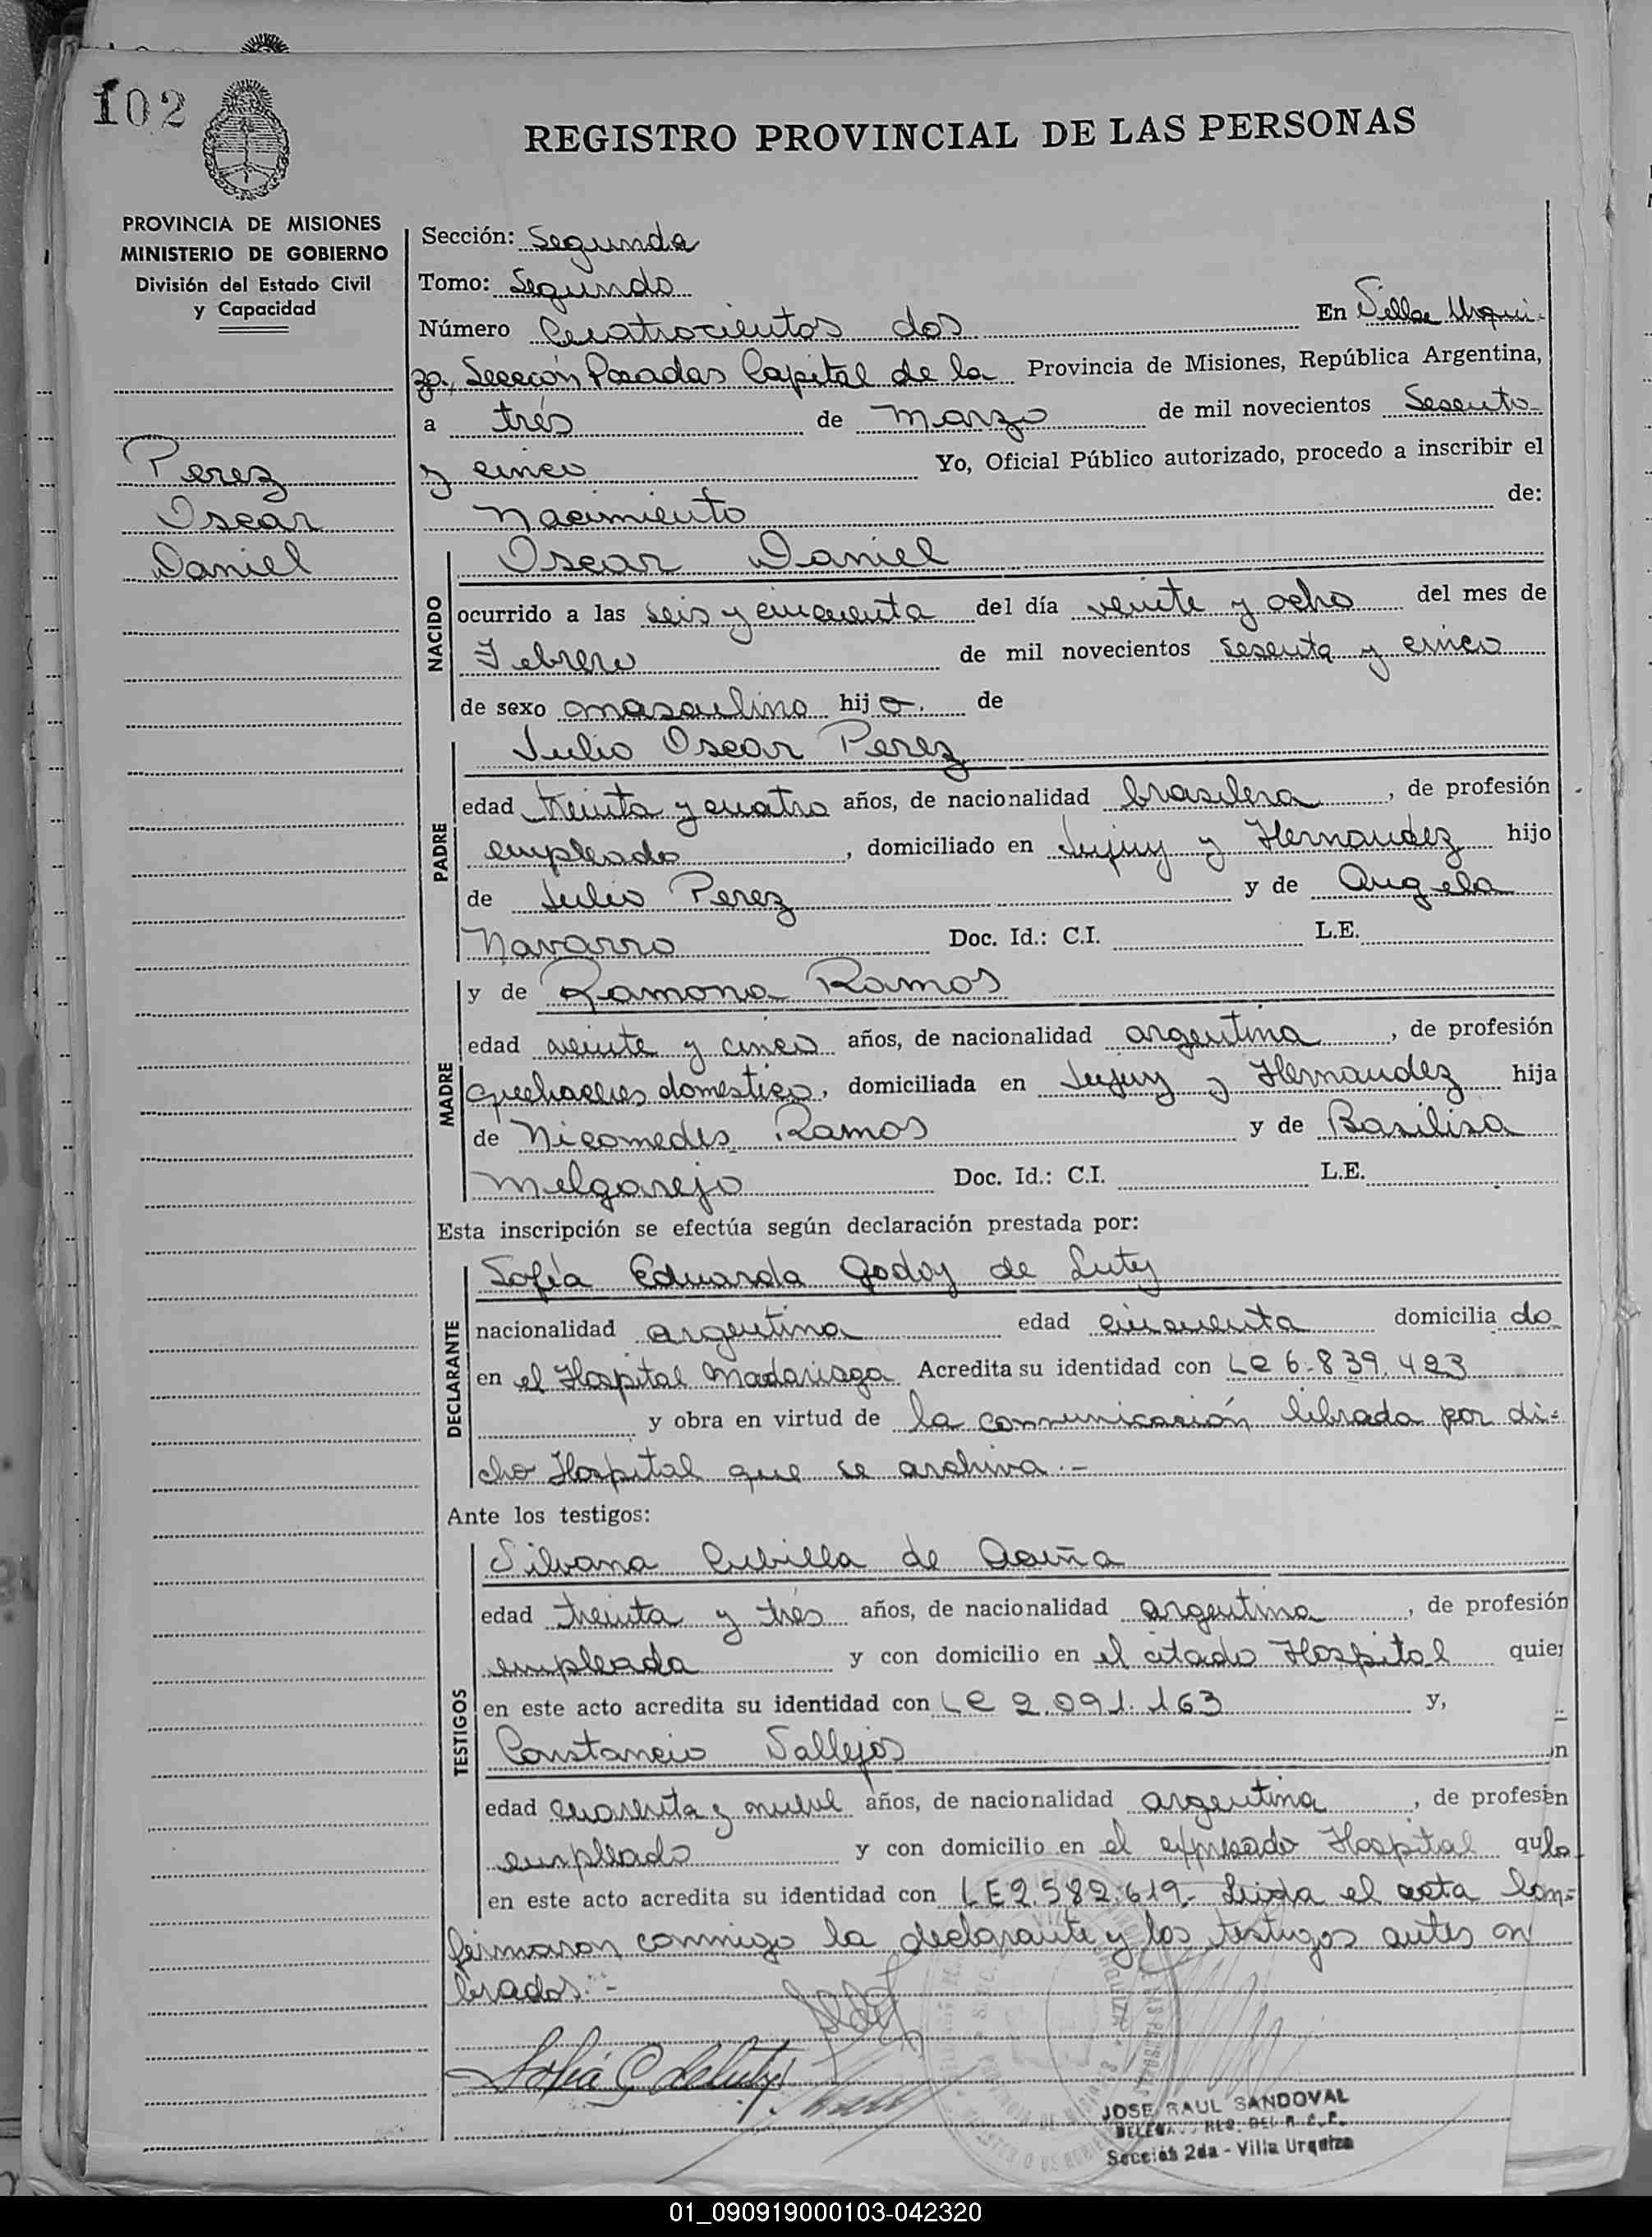 102
REGISTRO PROVINCIAL DE LAS PERSONAS
PROVINCIA DE MISIONES
MINISTERIO DE GOBIERNO
División del Estado Civil
y Capacidad
Perez
Oscar
Daniel
Sección: Segunda
Tomo: Segundo
Número Cuatrocientos dos En Villa Urqui-
za, Sección Posadas Capital de la Provincia de Misiones, República Argentina,
a tres de Marzo de mil novecientos Sesenta
y cinco Yo, Oficial Público autorizado, procedo a inscribir el
Nacimiento de:
NACIDO
Oscar Daniel
ocurrido a las seis y cincuenta del día veinte y ocho del mes de
Febrero de mil novecientos sesenta y cinco
de sexo masculino hijo. de
PADRE
Julio Oscar Perez
edad treinta y cuatro años, de nacionalidad brasilera, de profesión
empleado, domiciliado en Jujuy y Hernandez hijo
de Julio Perez y de Angela
Navarro Doc. Id.: C.I. L.E.
MADRE
y de Ramona Ramos
edad veinte y cinco años, de nacionalidad argentina, de profesión
quehaceres domestico, domiciliada en Jujuy y Hernandez hija
de Nicomedes Ramos y de Basilisa
Melgarejo Doc. Id.: C.I. L.E.
Esta inscripción se efectúa según declaración prestada por:
DECLARANTE
Sofía Eduarda Godoy de Luty
nacionalidad argentina edad cincuenta domiciliado
en el Hospital Madariaga Acredita su identidad con LC 6.839.423
y obra en virtud de la comunicación librada por di-
cho Hospital que se archiva.-
Ante los testigos:
TESTIGOS
Silvana Cubilla de Acuña
edad treinta y tres años, de nacionalidad argentina, de profesión
empleada y con domicilio en el citado Hospital quien
en este acto acredita su identidad con LC 2.091.163 y,
Constancio Vallejos
edad cuarenta y nueve años, de nacionalidad argentina, de profesión
empleado y con domicilio en el expresado Hospital
en este acto acredita su identidad con LE 2.582.619.- Leida el acta la
firmaron conmigo la declarante y los testigos antes
brados.-
Sofía G de Luty
JOSE RAUL SANDOVAL
Sección 2da - Villa Urquiza
01_090919000103-042320